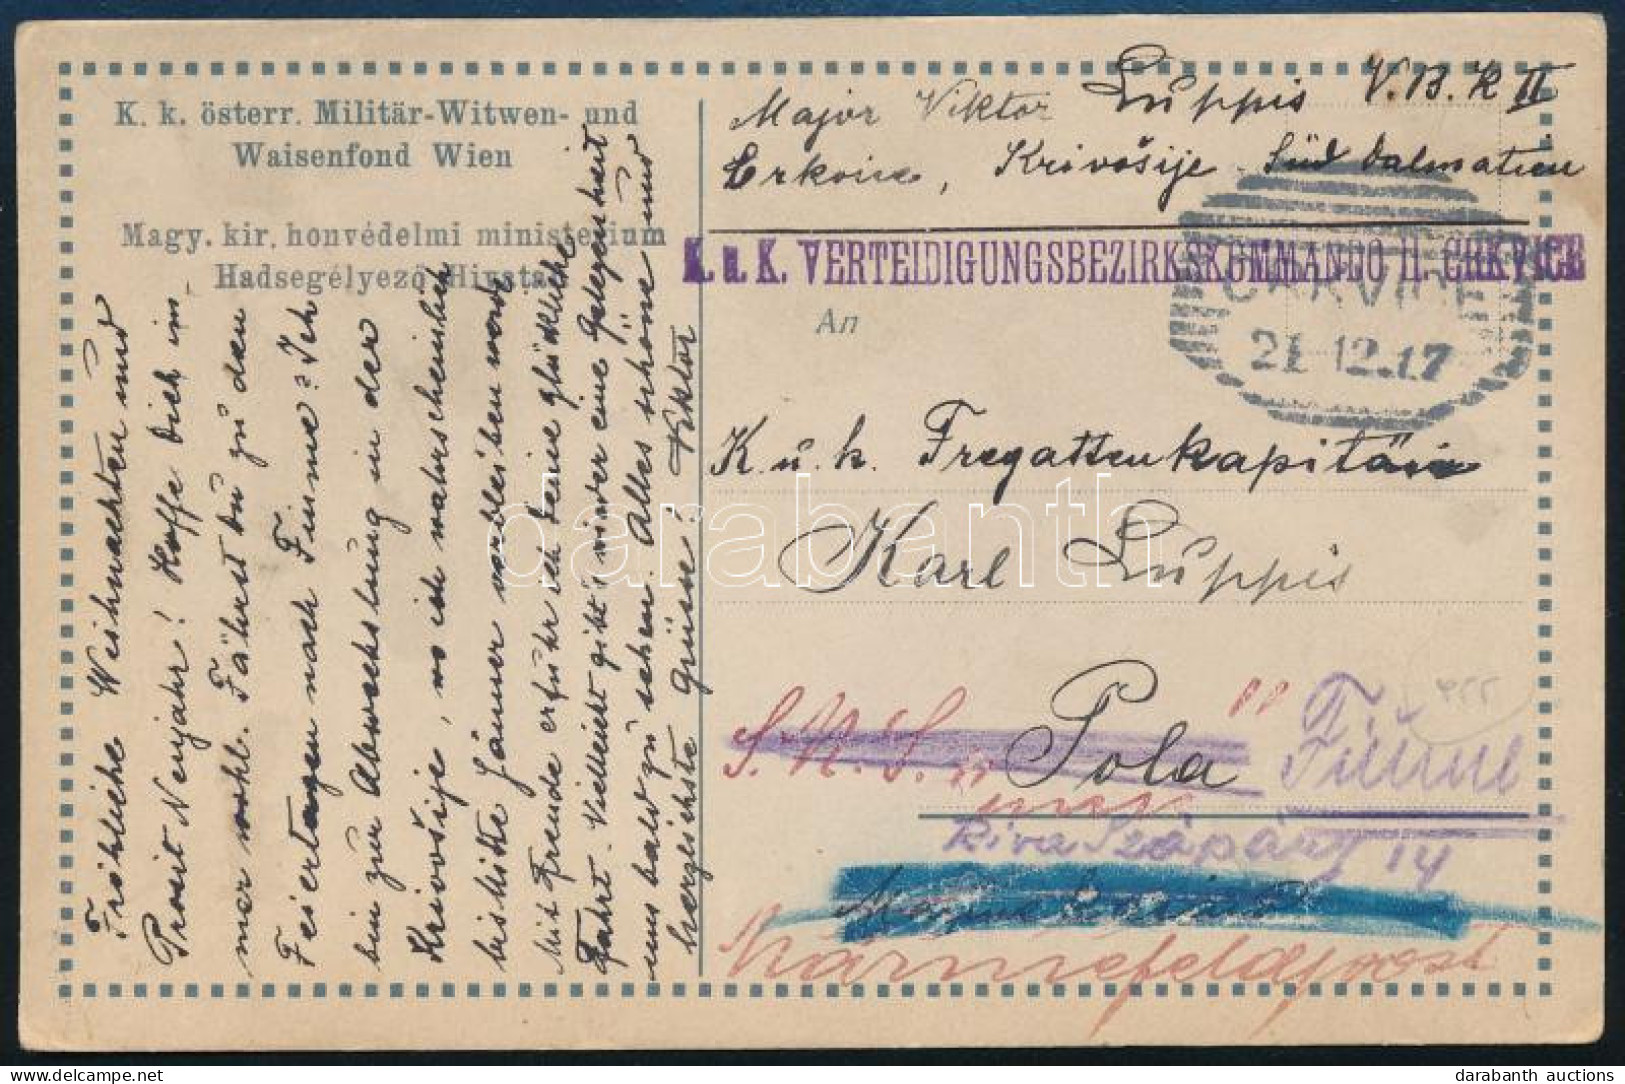 K. k. österr. Militär-Witwen- und
Waisenfond Wien
Magy. kir. honvédelmi ministerium
Hadsegélyező Hivatal
Fröhliche Weihnachten und
Prosit Neujahr! Hoffe Dich im-
mer wohl. Fährst Du zu den
Feiertagen nach Fiume? Ich
bin zur Abwechslung in der
Krivošije, wo ich wahrscheinlich
bis Mitte Jänner verbleiben werde
Mit Freude erfuhr ich Deine glückliche
Fahrt. Vielleicht gibt's wieder eine Gelegenheit
uns bald zu sehen. Alles schöne und
herzlichste Grüsse! Viktor
Major Viktor Luppis V.B.K II
Crkvice, Krivošije Süd Dalmatien
K. u. K. VERTEIDIGUNGSBEZIRKSKOMMANDO II. CRKVICE
CRKVICE
21 12.17
An
K. u. k. Fregattenkapitän
Karl Luppis
S. M. S.
Pola
Fiume
Riva Szápáry 14
Marinefeldpost
darabanth
darabanth auctions
www.darabanth.com